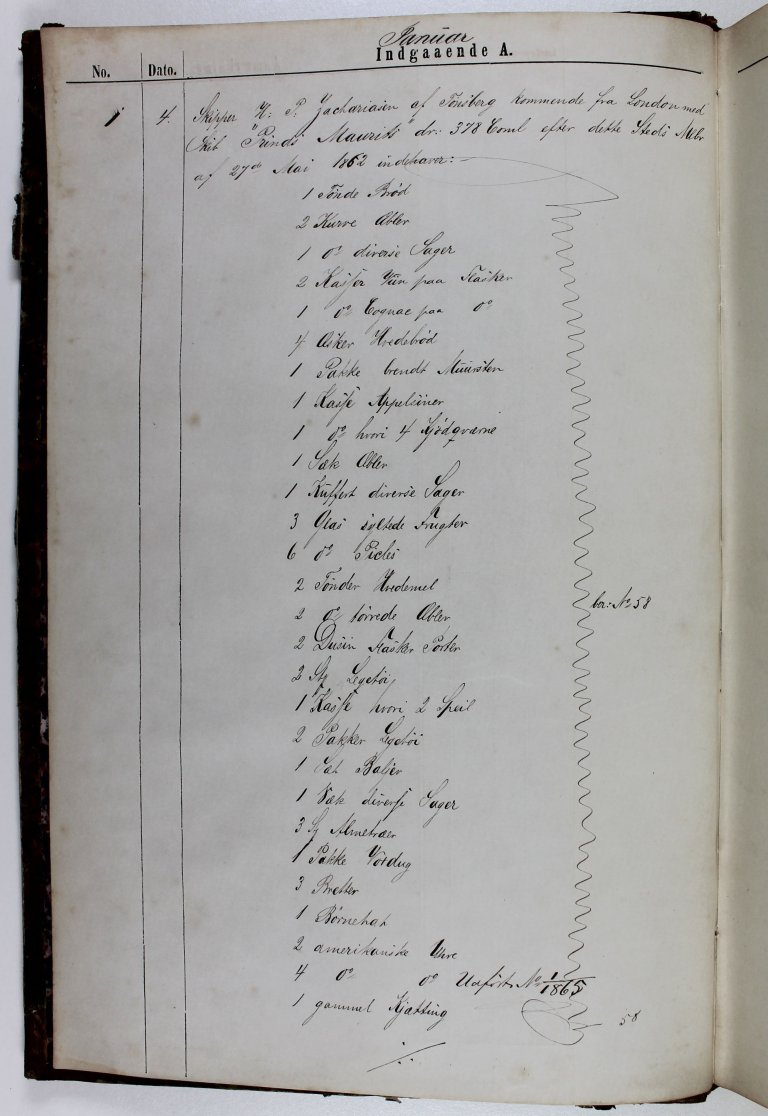 Januar
Indgaaende A.
No. Dato.
1 4. Skipper H: P. Zachariasen af Tönsberg kommende fra London med
Skib "Prinds Maurits" dr: 378 Coml efter dette Steds Mlbr
af 27de Mai 1862 indehaver:-
1 Tönde Bröd
2 Kurve Æbler
1 do diverse Sager
2 Kasser Viin paa Flasker
1 do Cognac paa do
4 Æsker Hvedebröd
1 Pakke brendt Muursten
1 Kasse Appelsiner
1 do hvori 4 Kjödqværne
1 Sæk Æbler
1 Kuffert diverse Sager
3 Glas syltede Frugter
6 do Picles
2 Tönder Hvedemel
2 do törrede Æbler
ber: No 58
2 Dusin Flasker Porter
2 St Legetöi
1 Kasse hvori 2 Speil
2 Pakker Legetöi
1 Sæt Baljer
1 Sæk diverse Sager
3 St Almetræer
1 Pakke Voxdug
3 Bretter
1 Börnehat
2 amerikanske Uhre
4 do do Udfört No 1/1865
1 gammel Kjætting
58
./.